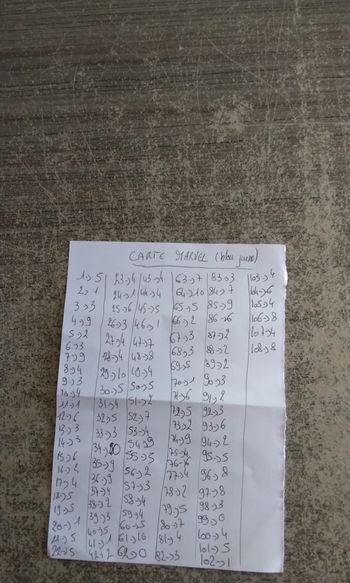 CARTE MARVEL (bleu jaune)
1->5
2->1
3->3
4->9
5->2
6->3
7->9
8->4
9->3
10->4
11->1
12->6
13->3
14->3
15->6
16->2
17->4
18->5
19->5
20->1
21->5
22->5
23->4
24->1
25->6
26->3
27->4
28->4
29->10
30->5
31->4
32->5
33->3
34->
35->9
36->9
37->4
38->2
39->3
40->5
41->1
42->2
43->1
44->4
45->5
46->1
47->7
48->8
49->4
50->5
51->2
52->7
53->4
54->9
55->5
56->2
57->3
58->4
59->4
60->5
61->10
62->0
63->7
64->10
65->5
66->2
67->3
68->3
69->5
70->1
71->6
72->5
73->2
74->9
75->4
76->
77->4
78->2
79->5
80->7
81->4
82->3
83->3
84->7
85->9
86->6
87->2
88->2
89->2
90->3
91->2
92->3
93->6
94->2
95->5
96->8
97->8
98->3
99->0
100->4
101->5
102->1
103->4
104->6
105->4
106->8
107->4
108->8